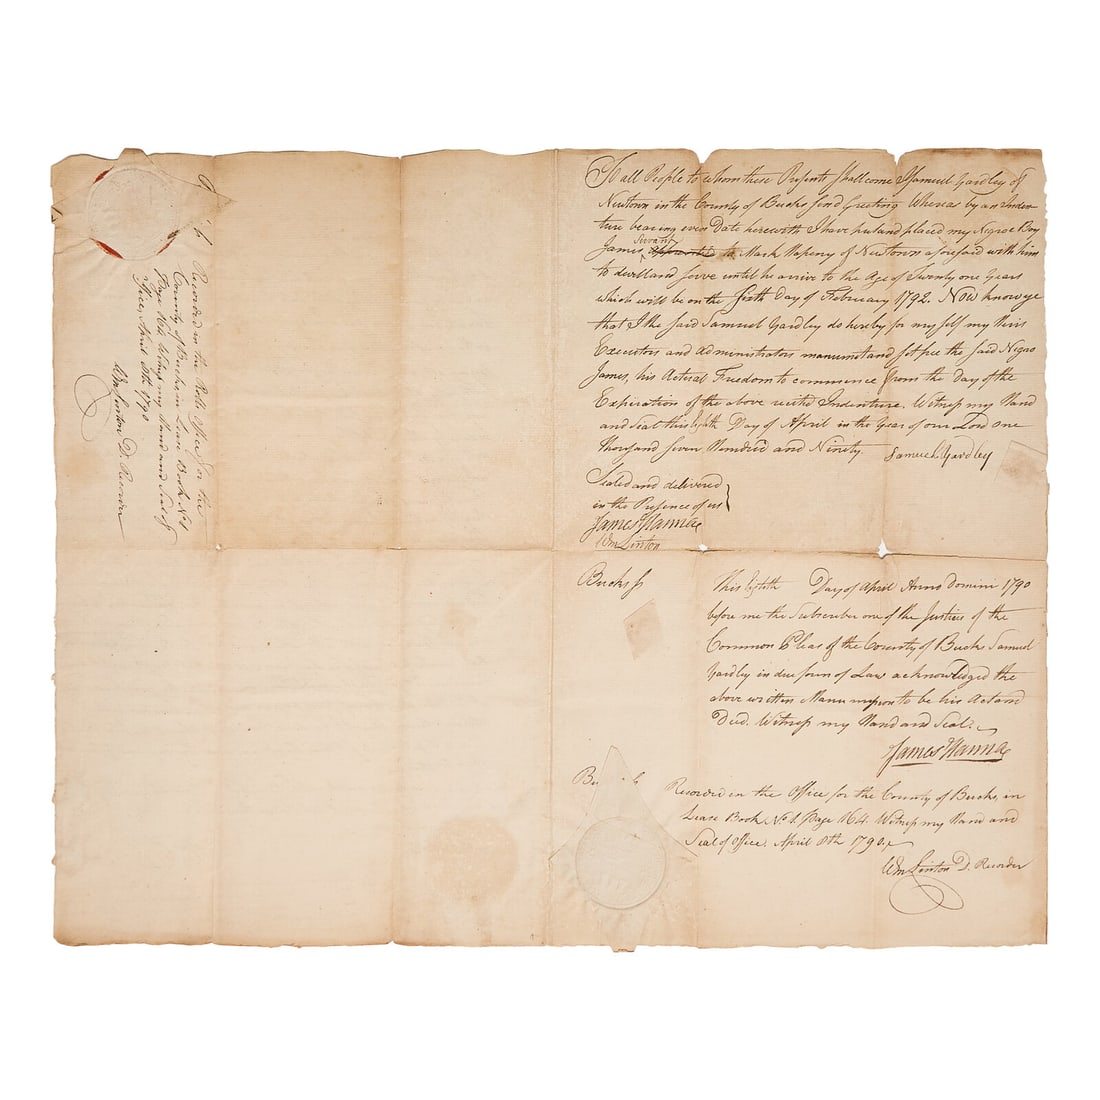 To all People to whom these Presents shall come I Samuel Yardley of
Newtown in the County of Bucks send Greeting Whereas by an Inden-
ture bearing even Date herewith I have put and placed my Negroe Boy
James Servant to Mark Hapeny of Newtown aforesaid with him
to dwell and serve until he arrive to the Age of Twenty one Years
which will be on the sixth Day of February 1792. Now know ye
that I the said Samuel Yardley do hereby for myself my Heirs
Executors and Administrators manumit and set free the said Negro
James, his Actual Freedom to commence from the Day of the
Expiration of the above recited Indenture. Witness my Hand
and Seal this Eighth Day of April in the Year of our Lord one
thousand seven Hundred and Ninety
Samuel Yardley
Sealed and delivered
in the Presence of us
James Hanna
Wm Linton
Bucks ss
This Eighth Day of April Anno Domini 1790
before me the Subscriber one of the Justices of the
Common Pleas of the County of Bucks Samuel
Yardley in due form of Law acknowledged the
above written Manumission to be his Act and
Deed. Witness my Hand and Seal.
James Hanna
Recorded in the Office for the County of Bucks, in
Lease Book No 1. Page 164. Witness my Hand and
Seal of Office. April 8th 1790
Wm Linton D. Recorder
Recorded in the Rolls Office for the
County of Bucks in Lease Book No 1
Page 164 Witness my Hand and Seal of
Office, April 8th 1790
Wm Linton D. Recorder